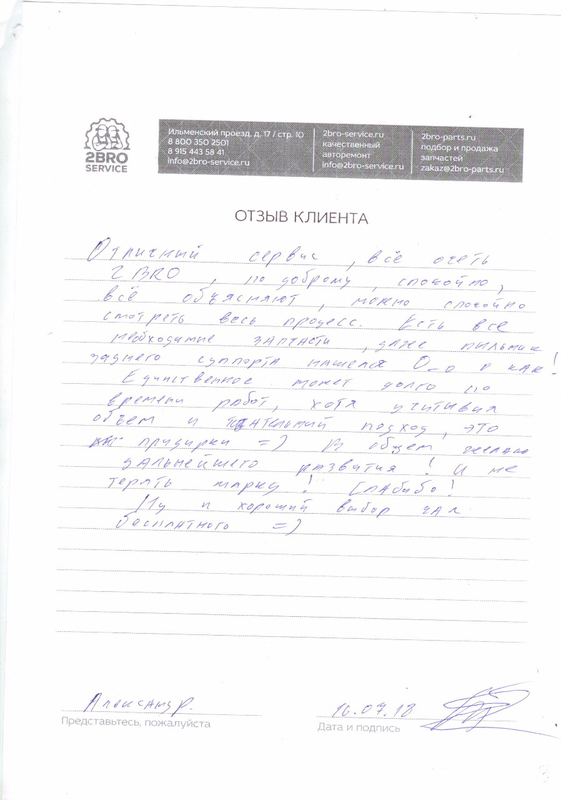 2BRO
SERVICE
Ильменский проезд, д. 17 / стр. 10
8 800 350 2501
8 915 443 58 41
info@2bro-service.ru
2bro-service.ru
качественный
авторемонт
info@2bro-service.ru
2bro-parts.ru
подбор и продажа
запчастей
zakaz@2bro-parts.ru
ОТЗЫВ КЛИЕНТА
Отличный сервис, всё очеть
2 BRO, по доброму, спокойно,
всё объясняют, можно спокойно
смотреть весь процесс. Есть все
необходимые запчасти, даже пыльник
заднего суппорта нашелся O_o в как!
Единственное может долго по
времени работ, хотя учитывая
объем и тщательний подход, это
придирки =) В общем желаю
дальнейшего развития! И не
терять марку! Спасибо!
Ну и хороший выбор чая
бесплатного =)
Александр.
Представьтесь, пожалуйста
16.07.18
Дата и подпись